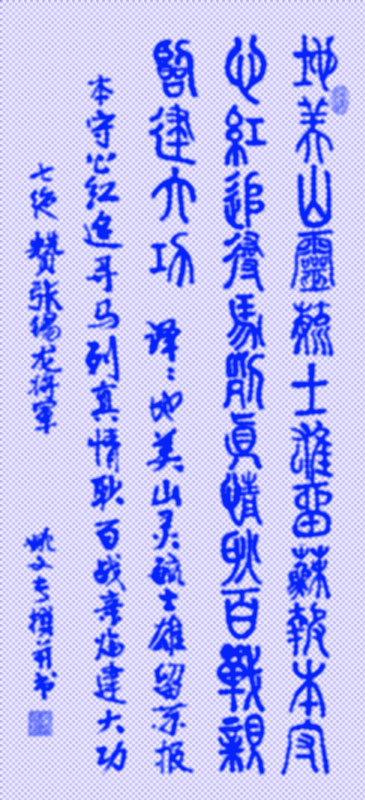 地美山靈毓士雄留蘇報本守
心紅追尋馬列眞情耿百戰親
建大功 译：地美山灵毓士雄留苏报
本守心红追寻马列真情耿百战亲建大功
七绝 赞张龙将军 姚文撰并书